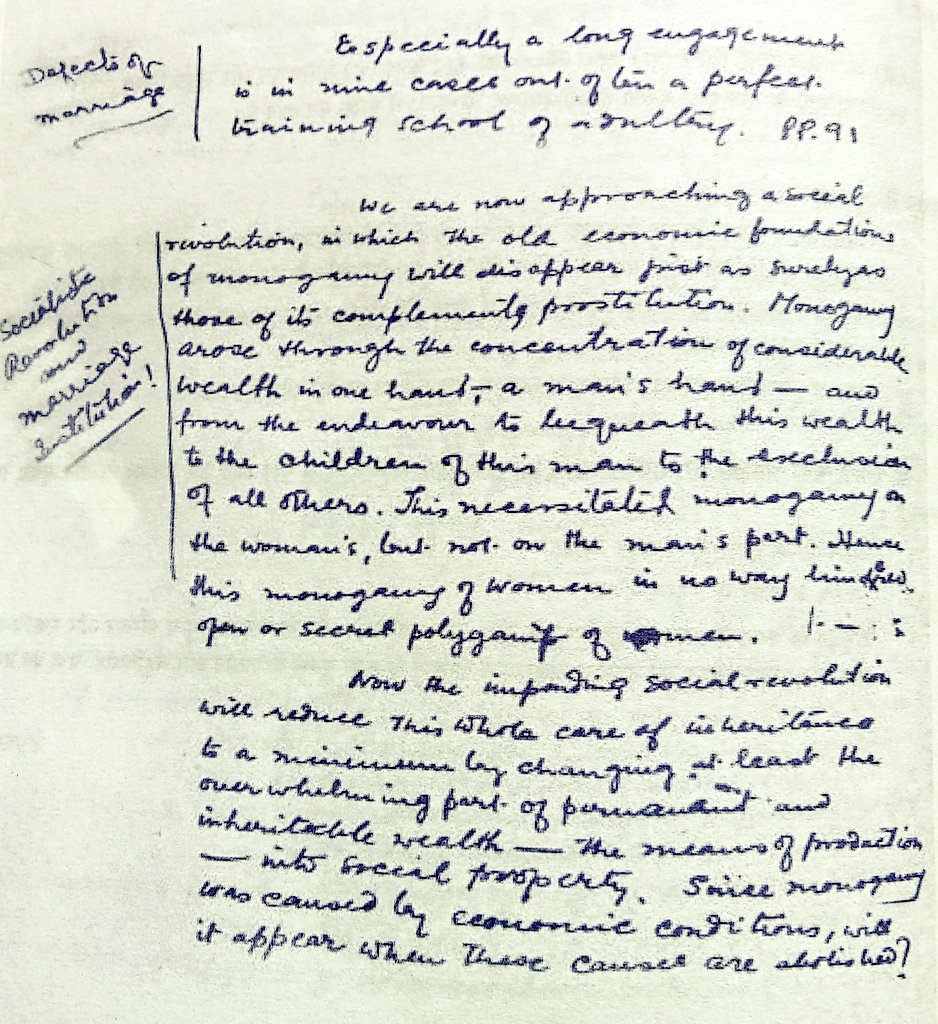 Defects of
marriage
Especially a long engagement
is in nine cases out of ten a perfect
training school of adultery. PP. 91
Socialistic
Revolution
and
marriage
Institution!
We are now approaching a social
revolution, in which the old economic foundations
of monogamy will disappear just as surely as
those of its complement, prostitution. Monogamy
arose through the concentration of considerable
wealth in one hand, — a man's hand — and
from the endeavour to bequeath this wealth
to the children of this man to the exclusion
of all others. This necessitated monogamy on
the woman's, but not on the man's part. Hence
this monogamy of women in no way hindered
open or secret polygamy of men.
Now the impending social revolution
will reduce this whole care of inheritance
to a minimum by changing at least the
overwhelming part of permanent and
inheritable wealth — the means of production
— into social property. Since monogamy
was caused by economic conditions, will
it appear when these causes are abolished?